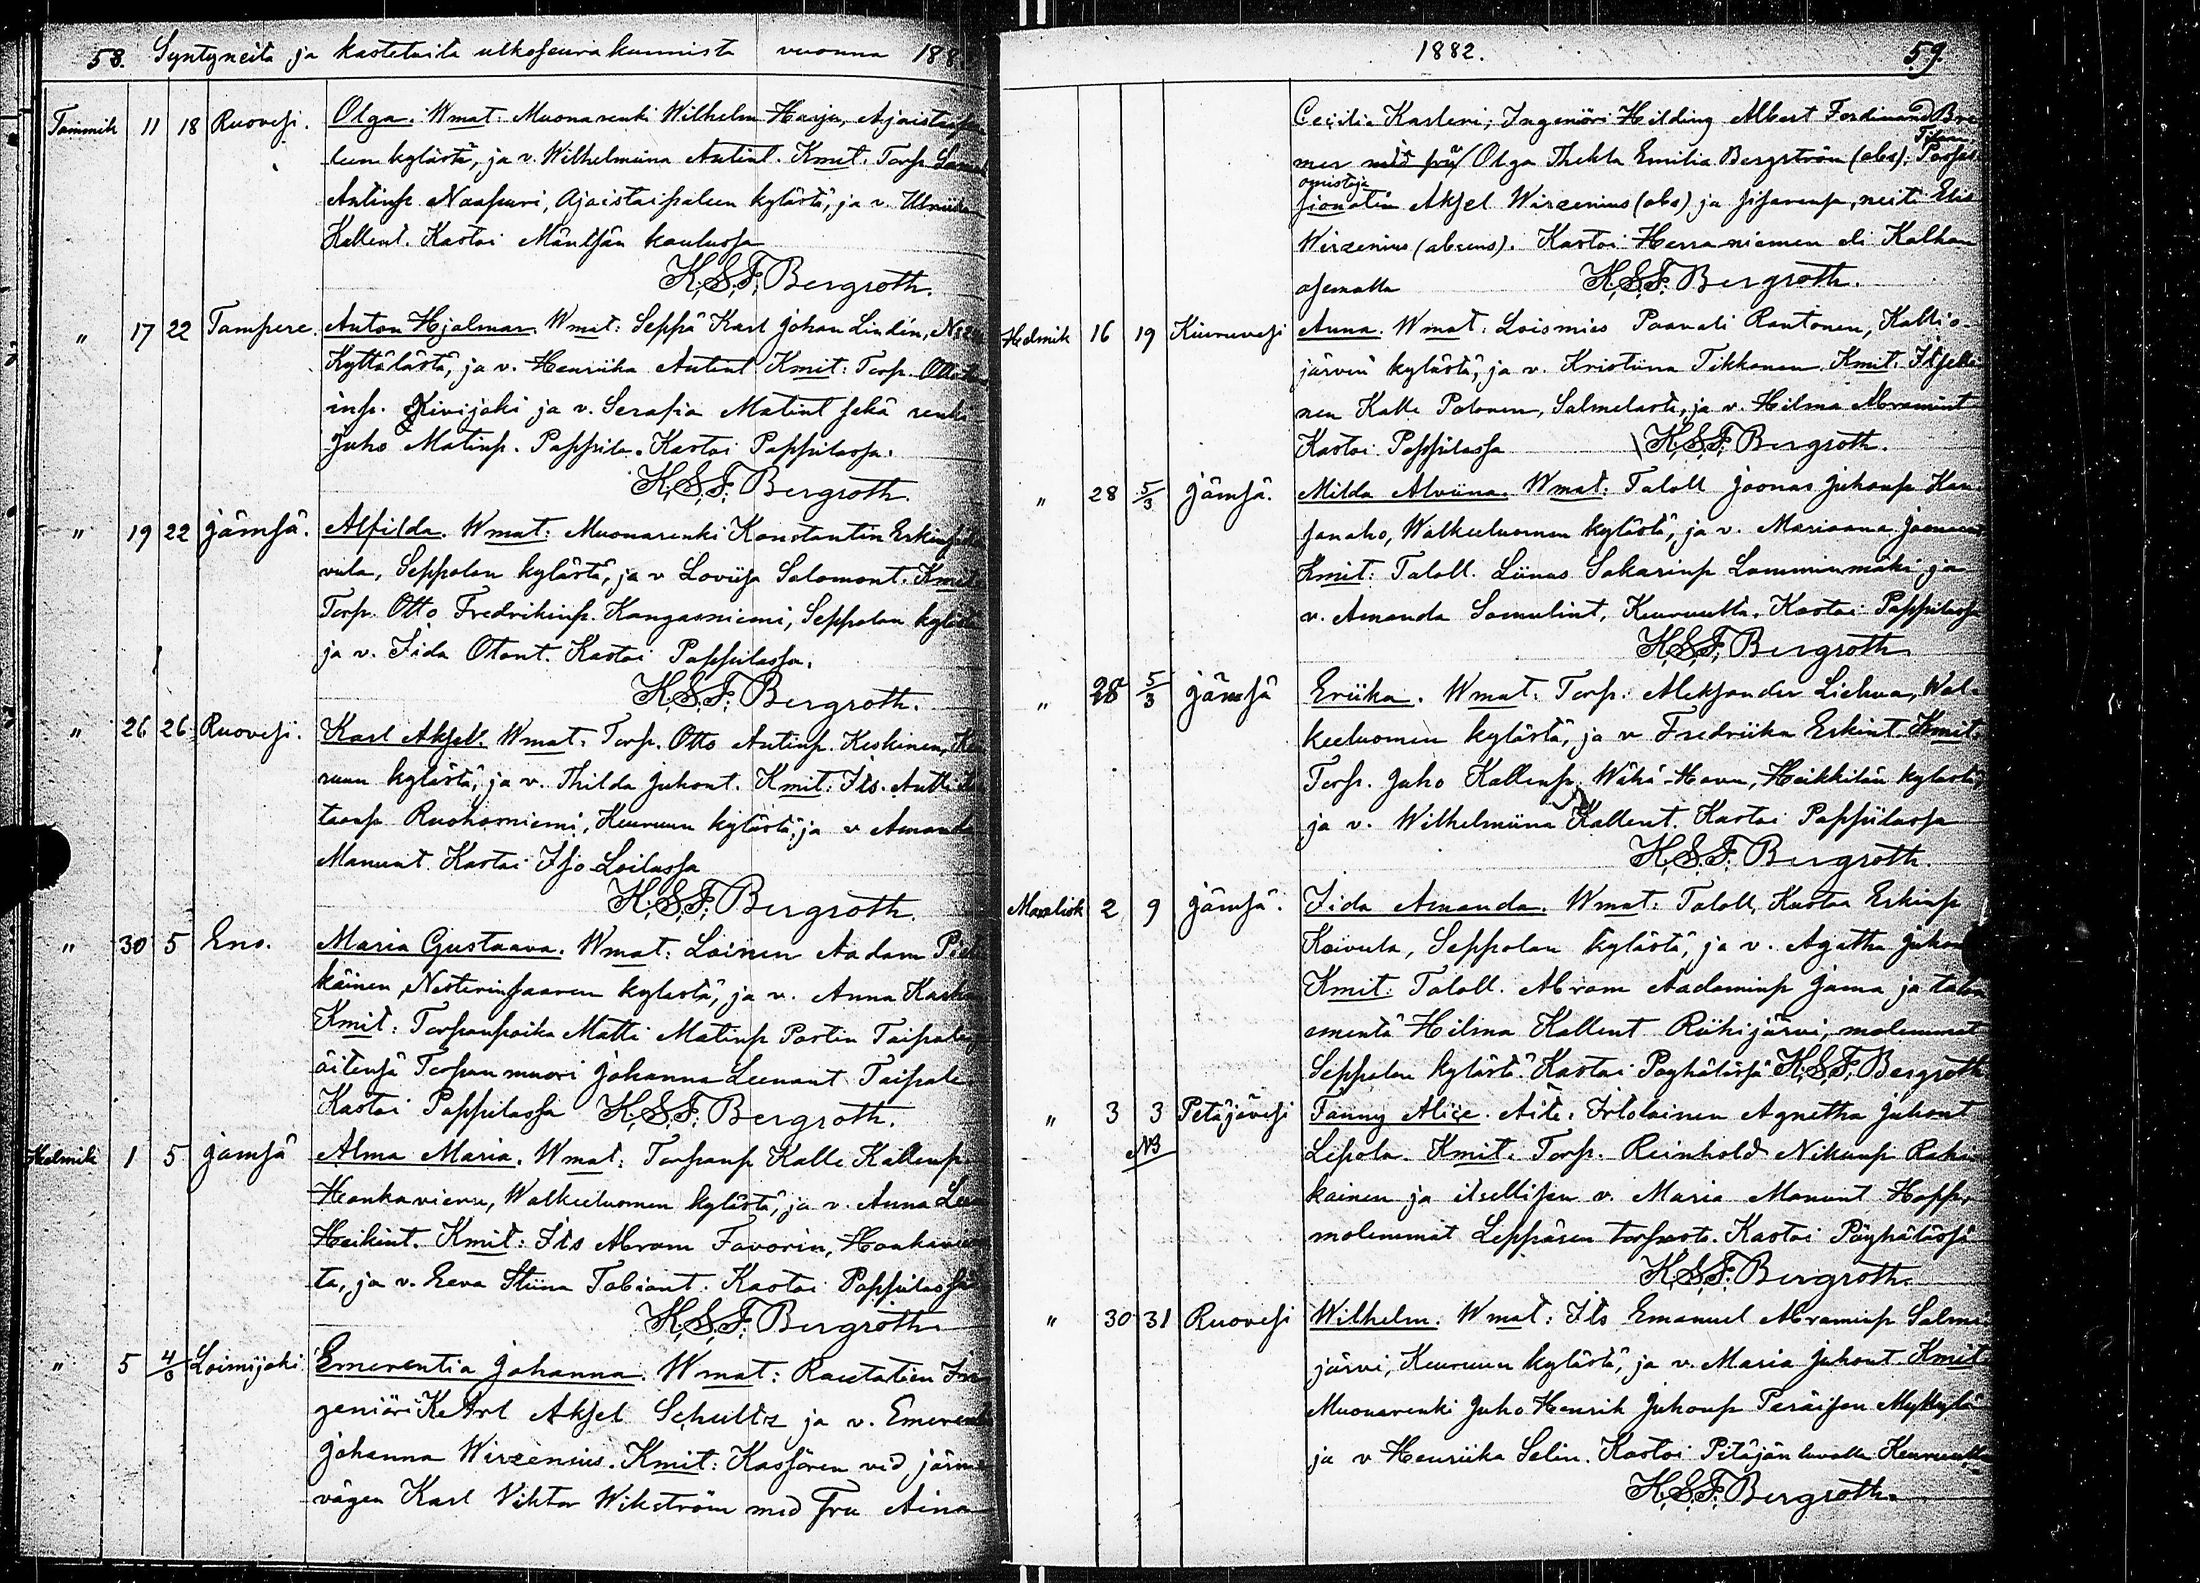 58. Syntyneitä ja kastetuita ulkoseurakunnista vuonna 188
Tammik 11 18 Ruovesi. Olga. Wmat: Muonarenki Wilhelm Harju,
leen kylästä, ja v. Wilhelmiina Antint. Kmit. Torp
Antinp. Naapuri, Ajaistaipaleen kylästä, ja v.
Kallent. Kastoi Mäntsän koulussa
K.S.F. Bergroth.
" 17 22 Tampere. Anton Hjalmar. Wmat: Seppä Karl Johan Lindén,
Kyttälästä, ja v. Henriika Antint Kmit: Torp. Otto
inp. Kivijoki ja v. Serafia Matint sekä renki
Juho Matinp. Pappila. Kastoi Pappilassa.
K.S.F. Bergroth.
" 19 22 Jämsä. Alfilda. Wmat: Muonarenki Konstantin
vula, Seppolan kylästä, ja v Loviisa Salomont. Kmit
Torp. Otto Fredrikinp. Kangasniemi, Seppolan kylästä
ja v. Iida Otont. Kastoi Pappilassa.
K.S.F. Bergroth.
" 26 26 Ruovesi. Karl Aksel. Wmat: Torp. Otto Antinp. Keskinen,
ruun kylästä, ja v. Thilda Juhont. Kmit: Its. Antti
taanp Ruohoniemi, Keuruun kylästä, ja v Amanda
Manunt. Kastoi Iso-Loilassa
K.S.F. Bergroth.
" 30 5 Eno. Maria Gustaava. Wmat: Loinen Aadam
käinen, Nesterinsaaren kylästä, ja v. Anna
Kmit: Torpanpoika Matti Matinp Portin Taipale
äitensä Torpan muori Johanna Leenant Taipale
Kastoi Pappilassa K.S.F. Bergroth.
Helmik 1 5 Jämsä Alma Maria. Wmat: Torpanp Kalle Kallenp
Honkavieru, Walkeeluomen kylästä, ja v. Anna
Heikint. Kmit: Its Abram Favorin,
ta, ja v. Eeva Stiina Tobiant. Kastoi Pappilassa
K.S.F. Bergroth
" 5 Loimijoki Emerentia Johanna. Wmat: Rautatien In
geniöri Karl Aksel Schultz ja v.
Johanna Wirzenius. Kmit: Kassören vid järn
vägen Karl Viktor Wikström med Fru Aina
1882. 59.
Cecilia Karleni; Ingeniöri Hilding Albert Ferdinand
mer med fru Olga Thekla Emilia Bergström (abs);
omistaja
Aksel Wirzenius (abs) ja sisarensa, neiti
Wirzenius (absens). Kastoi Herraniemen eli Kolhon
asemalla K.S.F. Bergroth.
Helmik 16 19 Kiuruvesi Anna. Wmat: Loismies Paavali Rautonen, Kallio-
järven kylästä, ja v. Kristiina Tikkanen Kmit. Itselli
nen Kalle Polonen, Salmelasta, ja v. Hilma Abramint
Kastoi Pappilassa K.S.F. Bergroth.
" 28 5/3 Jämsä. Milda Alviina. Wmat: Taloll Joonas Juhonp
sanaho, Walkeeluomen kylästä, ja v. Mariaana
Kmit: Taloll. Liinus Sakarinp Lamminmäki ja
v. Amanda Samulint, Keuruulta. Kastoi Pappilassa
K.S.F. Bergroth
" 28 5/3 Jämsä Eriika. Wmat: Torp. Aleksander Liehua, Wal-
keeluomen kylästä, ja v Fredriika Erkint. Kmit:
Torp. Juho Kallenp. Wähä-Havu, Heikkilän kylästä,
ja v. Wilhelmiina Kallent. Kastoi Pappilassa
K.S.F. Bergroth.
Maalisk 2 9 Jämsä. Iida Amanda. Wmat: Taloll, Kustaa Erkinp
Koivula, Seppolan kylästä, ja v. Agatha
Kmit: Taloll. Abram Aadaminp Jama ja talon
emäntä Hilma Kallent Riihijärvi, molemmat
Seppolan kylästä. Kastoi Pöyhölässä K.S.F. Bergroth
" 3 3 Petäjävesi Fanny Alice. Äiti: Irtolainen Agnetha Juhont
NB Lepola. Kmit. Torp. Reinhold Nikunp
kainen ja itsellisen v. Maria Manunt Happo,
molemmat Leppäsen torpasta. Kastoi Pöyhölässä
K.S.F. Bergroth.
" 30 31 Ruovesi Wilhelm. Wmat: Its Emanuel Abraminp Salmi
järvi, Keuruun kylästä, ja v. Maria Juhont Kmit
Muonarenki Juho Henrik Juhonp
ja v Henriika Selin. Kastoi Pitäjän tuvalla Keuruulla
K.S.F. Bergroth.